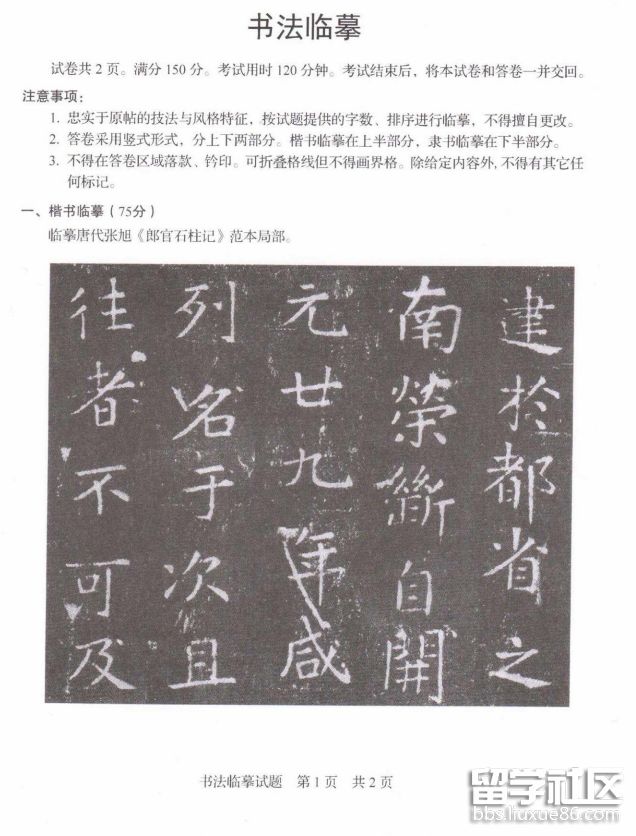 书法临摹
试卷共 2 页。满分 150 分。考试用时 120 分钟。考试结束后，将本试卷和答卷一并交回。
注意事项：
1. 忠实于原帖的技法与风格特征，按试题提供的字数、排序进行临摹，不得擅自更改。
2. 答卷采用竖式形式，分上下两部分。楷书临摹在上半部分，隶书临摹在下半部分。
3. 不得在答卷区域落款、钤印。可折叠格线但不得画界格。除给定内容外,不得有其它任
何标记。
一、楷书临摹（75分）
临摹唐代张旭《郎官石柱记》范本局部。
建於都省之
南榮斷自開
元廿九年咸
列名于次且
往者不可及
书法临摹试题 第 1 页 共 2 页
留学社区
bbs.liuxue86.com